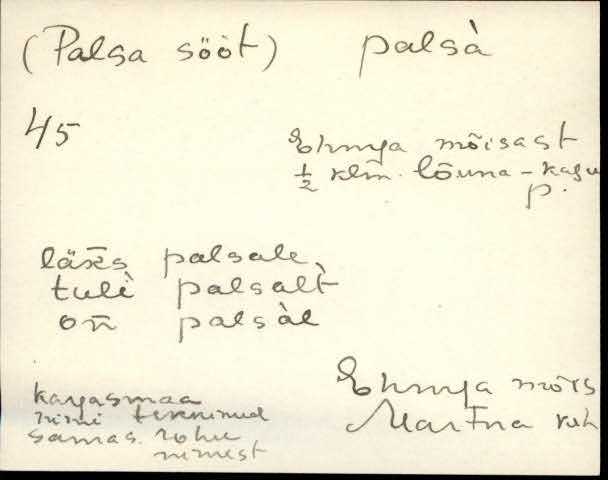 (Palsa sööt) palsà
45
Ehmja mõisast
½ klm. lõuna - kagu
p.
läks̄ palsale
tulì palsalt̀
on̄ palsàl
Ehmja mõis
Martna
karjasmaa
nimi tekkinud
samas. rohu
nimest